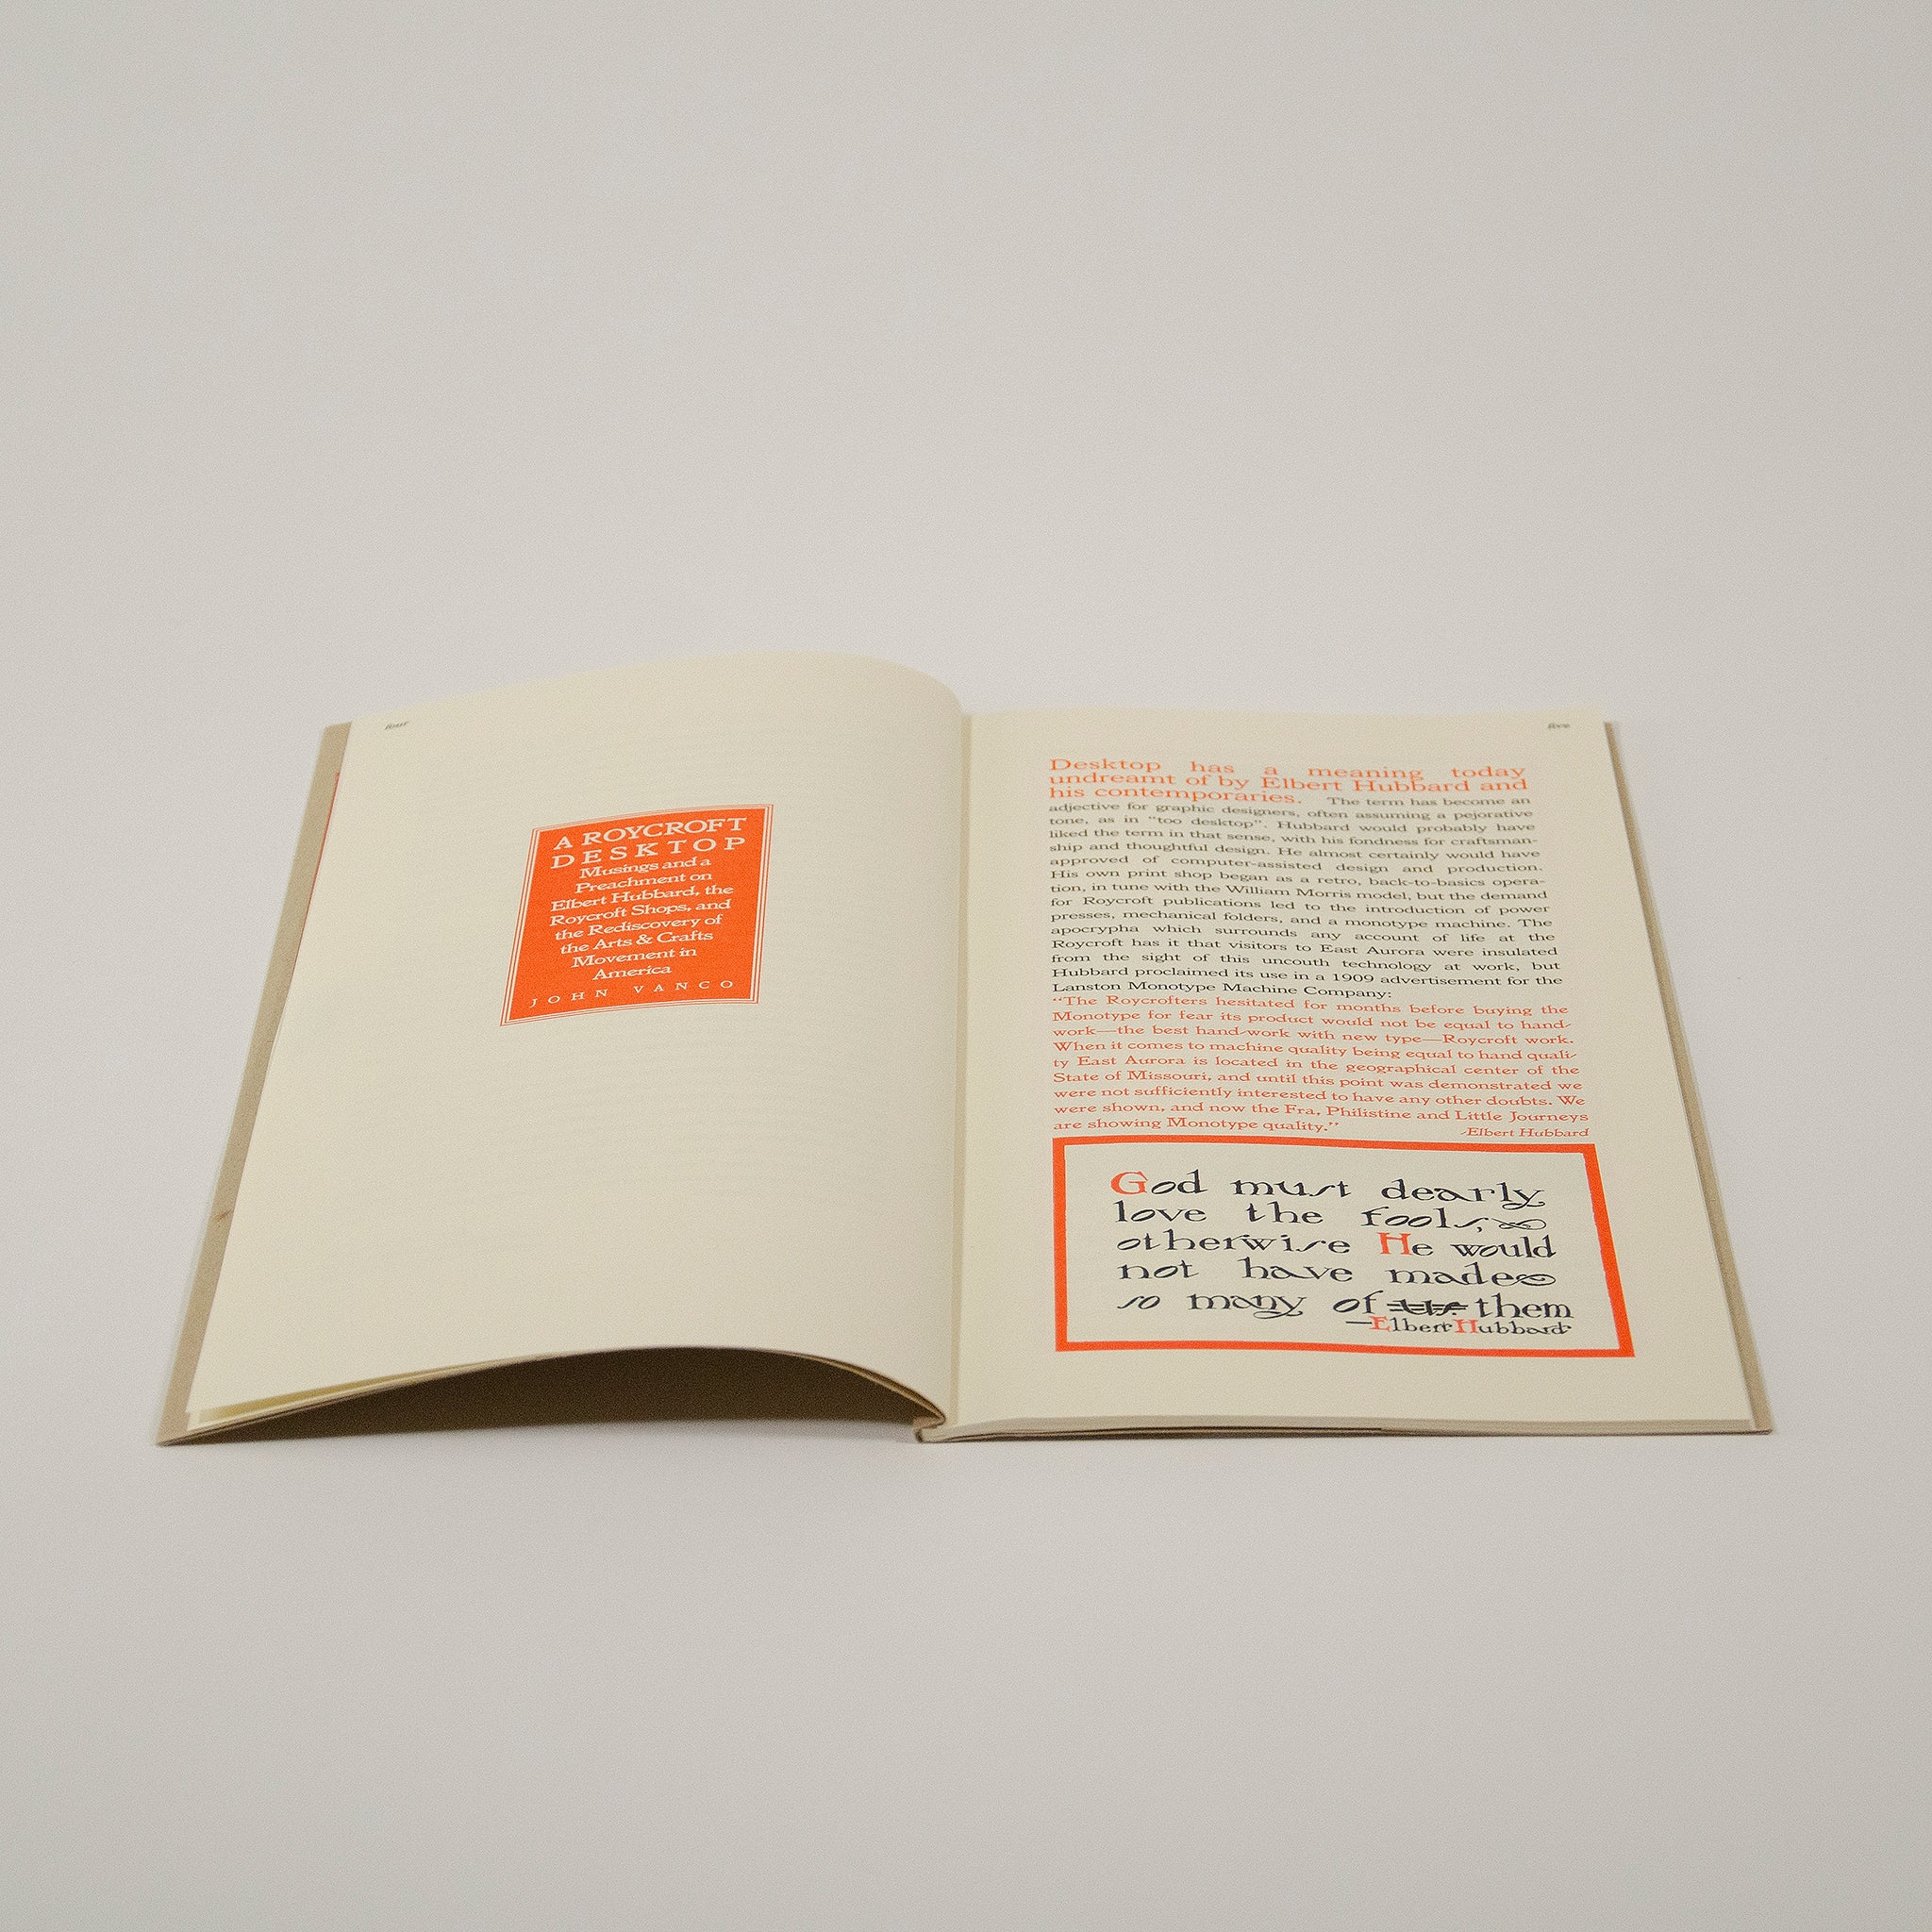 four
A ROYCROFT
DESKTOP
Musings and a
Preachment on
Elbert Hubbard, the
Roycroft Shops, and
the Rediscovery of
the Arts & Crafts
Movement in
America
JOHN VANCO
five
Desktop has a meaning today
undreamt of by Elbert Hubbard and
his contemporaries. The term has become an
adjective for graphic designers, often assuming a pejorative
tone, as in "too desktop". Hubbard would probably have
liked the term in that sense, with his fondness for craftsman-
ship and thoughtful design. He almost certainly would have
approved of computer-assisted design and production.
His own print shop began as a retro, back-to-basics opera-
tion, in tune with the William Morris model, but the demand
for Roycroft publications led to the introduction of power
presses, mechanical folders, and a monotype machine. The
apocrypha which surrounds any account of life at the
Roycroft has it that visitors to East Aurora were insulated
from the sight of this uncouth technology at work, but
Hubbard proclaimed its use in a 1909 advertisement for the
Lanston Monotype Machine Company:
"The Roycrofters hesitated for months before buying the
Monotype for fear its product would not be equal to hand-
work—the best hand-work with new type—Roycroft work.
When it comes to machine quality being equal to hand quali-
ty East Aurora is located in the geographical center of the
State of Missouri, and until this point was demonstrated we
were not sufficiently interested to have any other doubts. We
were shown, and now the Fra, Philistine and Little Journeys
are showing Monotype quality."
-Elbert Hubbard
God must dearly
love the fools,
otherwise He would
not have made
so many of them
—Elbert Hubbard